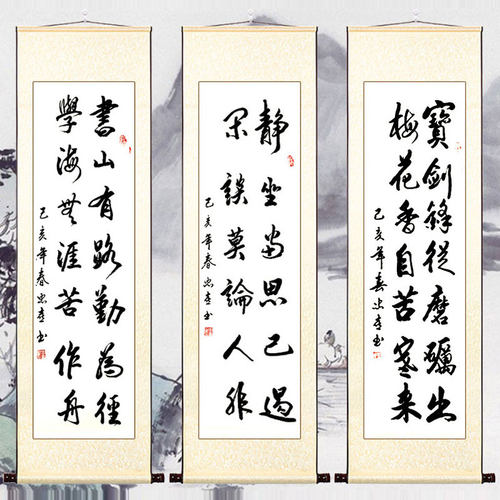 書山有路勤為徑
學海無涯苦作舟
己亥年春
靜坐當思己過
閑談莫論人非
己亥年春
寶劍鋒從磨礪出
梅花香自苦寒来
己亥年春